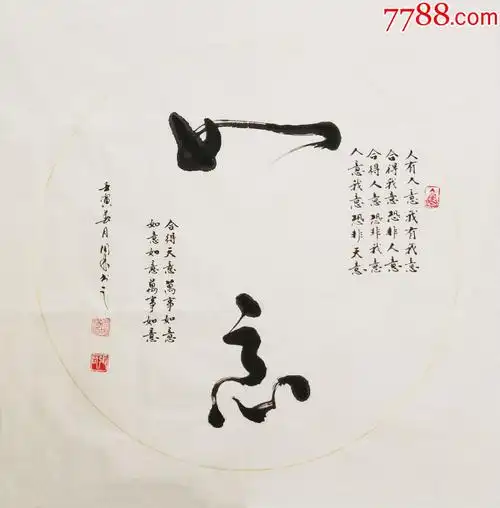 7788.com
人有人意我有我意
合得我意恐非人意
合得人意恐非我意
人意我意恐非天意
如意
合得天意萬事如意
如意如意萬事如意
壬寅春月周书之